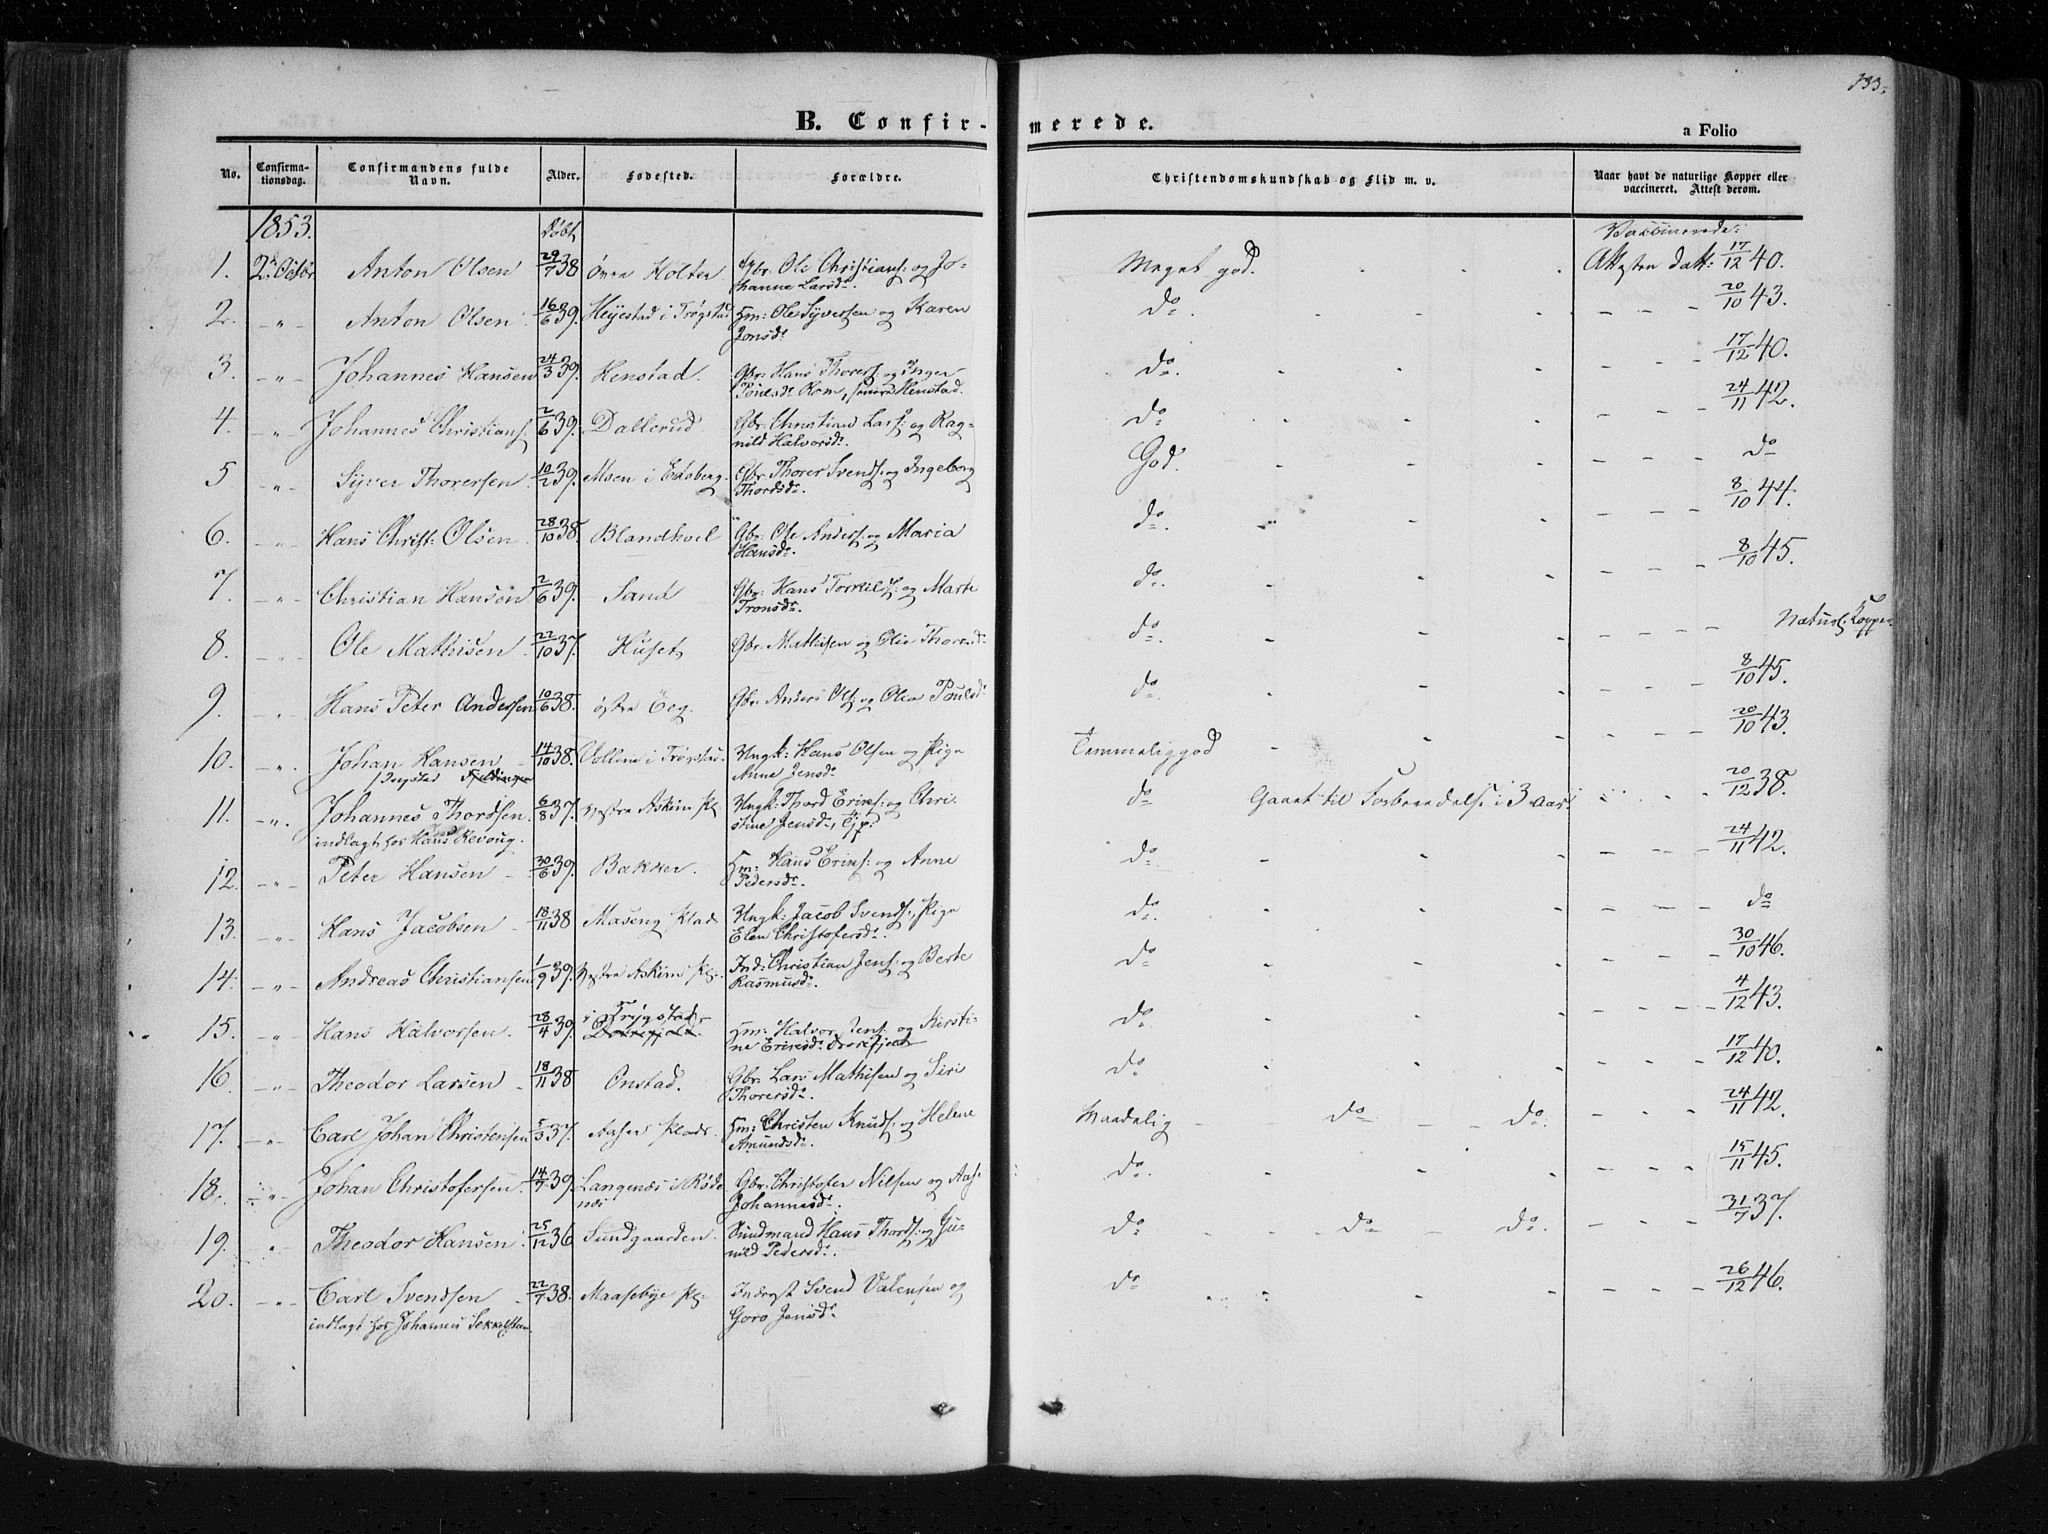 333.
B. Confir-
merede.
a Folio
No.
Confirma-
tionsdag.
Confirmandens fulde
Navn.
Alder.
Fødested.
Forældre.
Christendomskundskab og Flid m. v.
Naar havt de naturlige Kopper eller
vaccineret. Attest derom.
1853. døbt Vaksinerede:
1. 2. Octbr Anton Olsen 29/7 38 øvre Holter Gbr: Ole Christians: og Jo- Meget god. Attesten dat: 17/12 40.
hanne Larsdr.
2. - " - Anton Olsen 16/6 39. i Trøgstad Hm: Ole Syversen og Karen do. 20/10 43.
Jonsdr.
3. - " - Johannes Hansen 24/3 39. Henstad. Gbr: Hans Thorers: og Inger do. 17/12 40.
Poulsdr Rom, Henstad.
4. - " - Johannes Christians: 2/6 39. Dallerud Gbr: Christian Lars: og Rag- do 24/11 42.
nild Halvorsdr.
5 " Syver Thorersen 10/2 39. Msen i Edsberg Gbr: Thorer Svends: og Ingeborg God. do
Thordsdr.
6. - " - Hans Christ: Olsen 28/10 38. Gbr: Ole Anders: og Maria do. 8/10 44.
Hansdr.
7. - " - Christian Hansen 2/6 39. Sand Gbr: Hans Torkils: og Marte do. 8/10 45.
Tronsdr.
8. - " - Ole Mathisen 22/10 37. Huset Gbr: Mathisen og Olia Thorersdr do. Naturl: Kopper
9. - " - Hans Peter Andersen 10/6 38. østre Eeg. Gbr: Anders Ols: og Olia Poulsdr do. 8/10 45.
10. - " - Johan Hansen 14/10 38. i Trøgstad Ungk: Hans Olsen og Pige Temmelig god 20/10 43.
Anne Jensdr
11. - " - Johannes Thordsen 6/8 37. vestre Askim Pl: Ungk: Thord Eriks: og Chri- do Gaaet til Forberedelse i 3 Aar 20/12 38.
indlagt hos Hans Revoug. stine Jensdr,
12. - " - Peter Hansen 30/6 39. Bakker. Hm: Hans Eriks: og Anne do. 24/11 42.
Pedersdr.
13. - " - Hans Jacobsen 18/11 38 Maseng Klad Ungk: Jacob Svends:, Pige do. do
Elen Christofersdr.
14. - " - Andreas Christiansen 1/9 39. vestre Askim Pl: Ind: Christian Jens: og Berte do 30/10 46.
Rasmusdr.
15. - " - Hans Halvorsen 28/4 39. i Trygstad Hm: Halvor Jens: og Kirsti- do. 4/12 43.
ne Eriksdr
16. - " - Theodor Larsen 18/11 38 Onstad. Gbr: Lars Mathisen og Siri do. 17/12 40.
Thorersdr.
17. - " - Carl Johan Christensen 5/3 37. Aaser Plads. Hm: Christen Knuds: og Helene Maadelig do do. 24/11 42.
Amundsdr.
18. - " - Johan Christofersen. 14/7 39. Langenæs i Røde- Gbr: Christofer Nilsen og Aas: do. 15/11 45.
næs Johannesdr.
19. - " - Theodor Hansen. 25/12 36 Sundgaarden. Sundmand Hans Thords: og Gu- do do do. 31/7 37.
nild Pedersdr.
20. - " - Carl Svendsen 22/7 38. Maasebye Pl: Inderst Svend Valensen og do 26/12 46.
indlagt hos Johannes Goro Jensdr